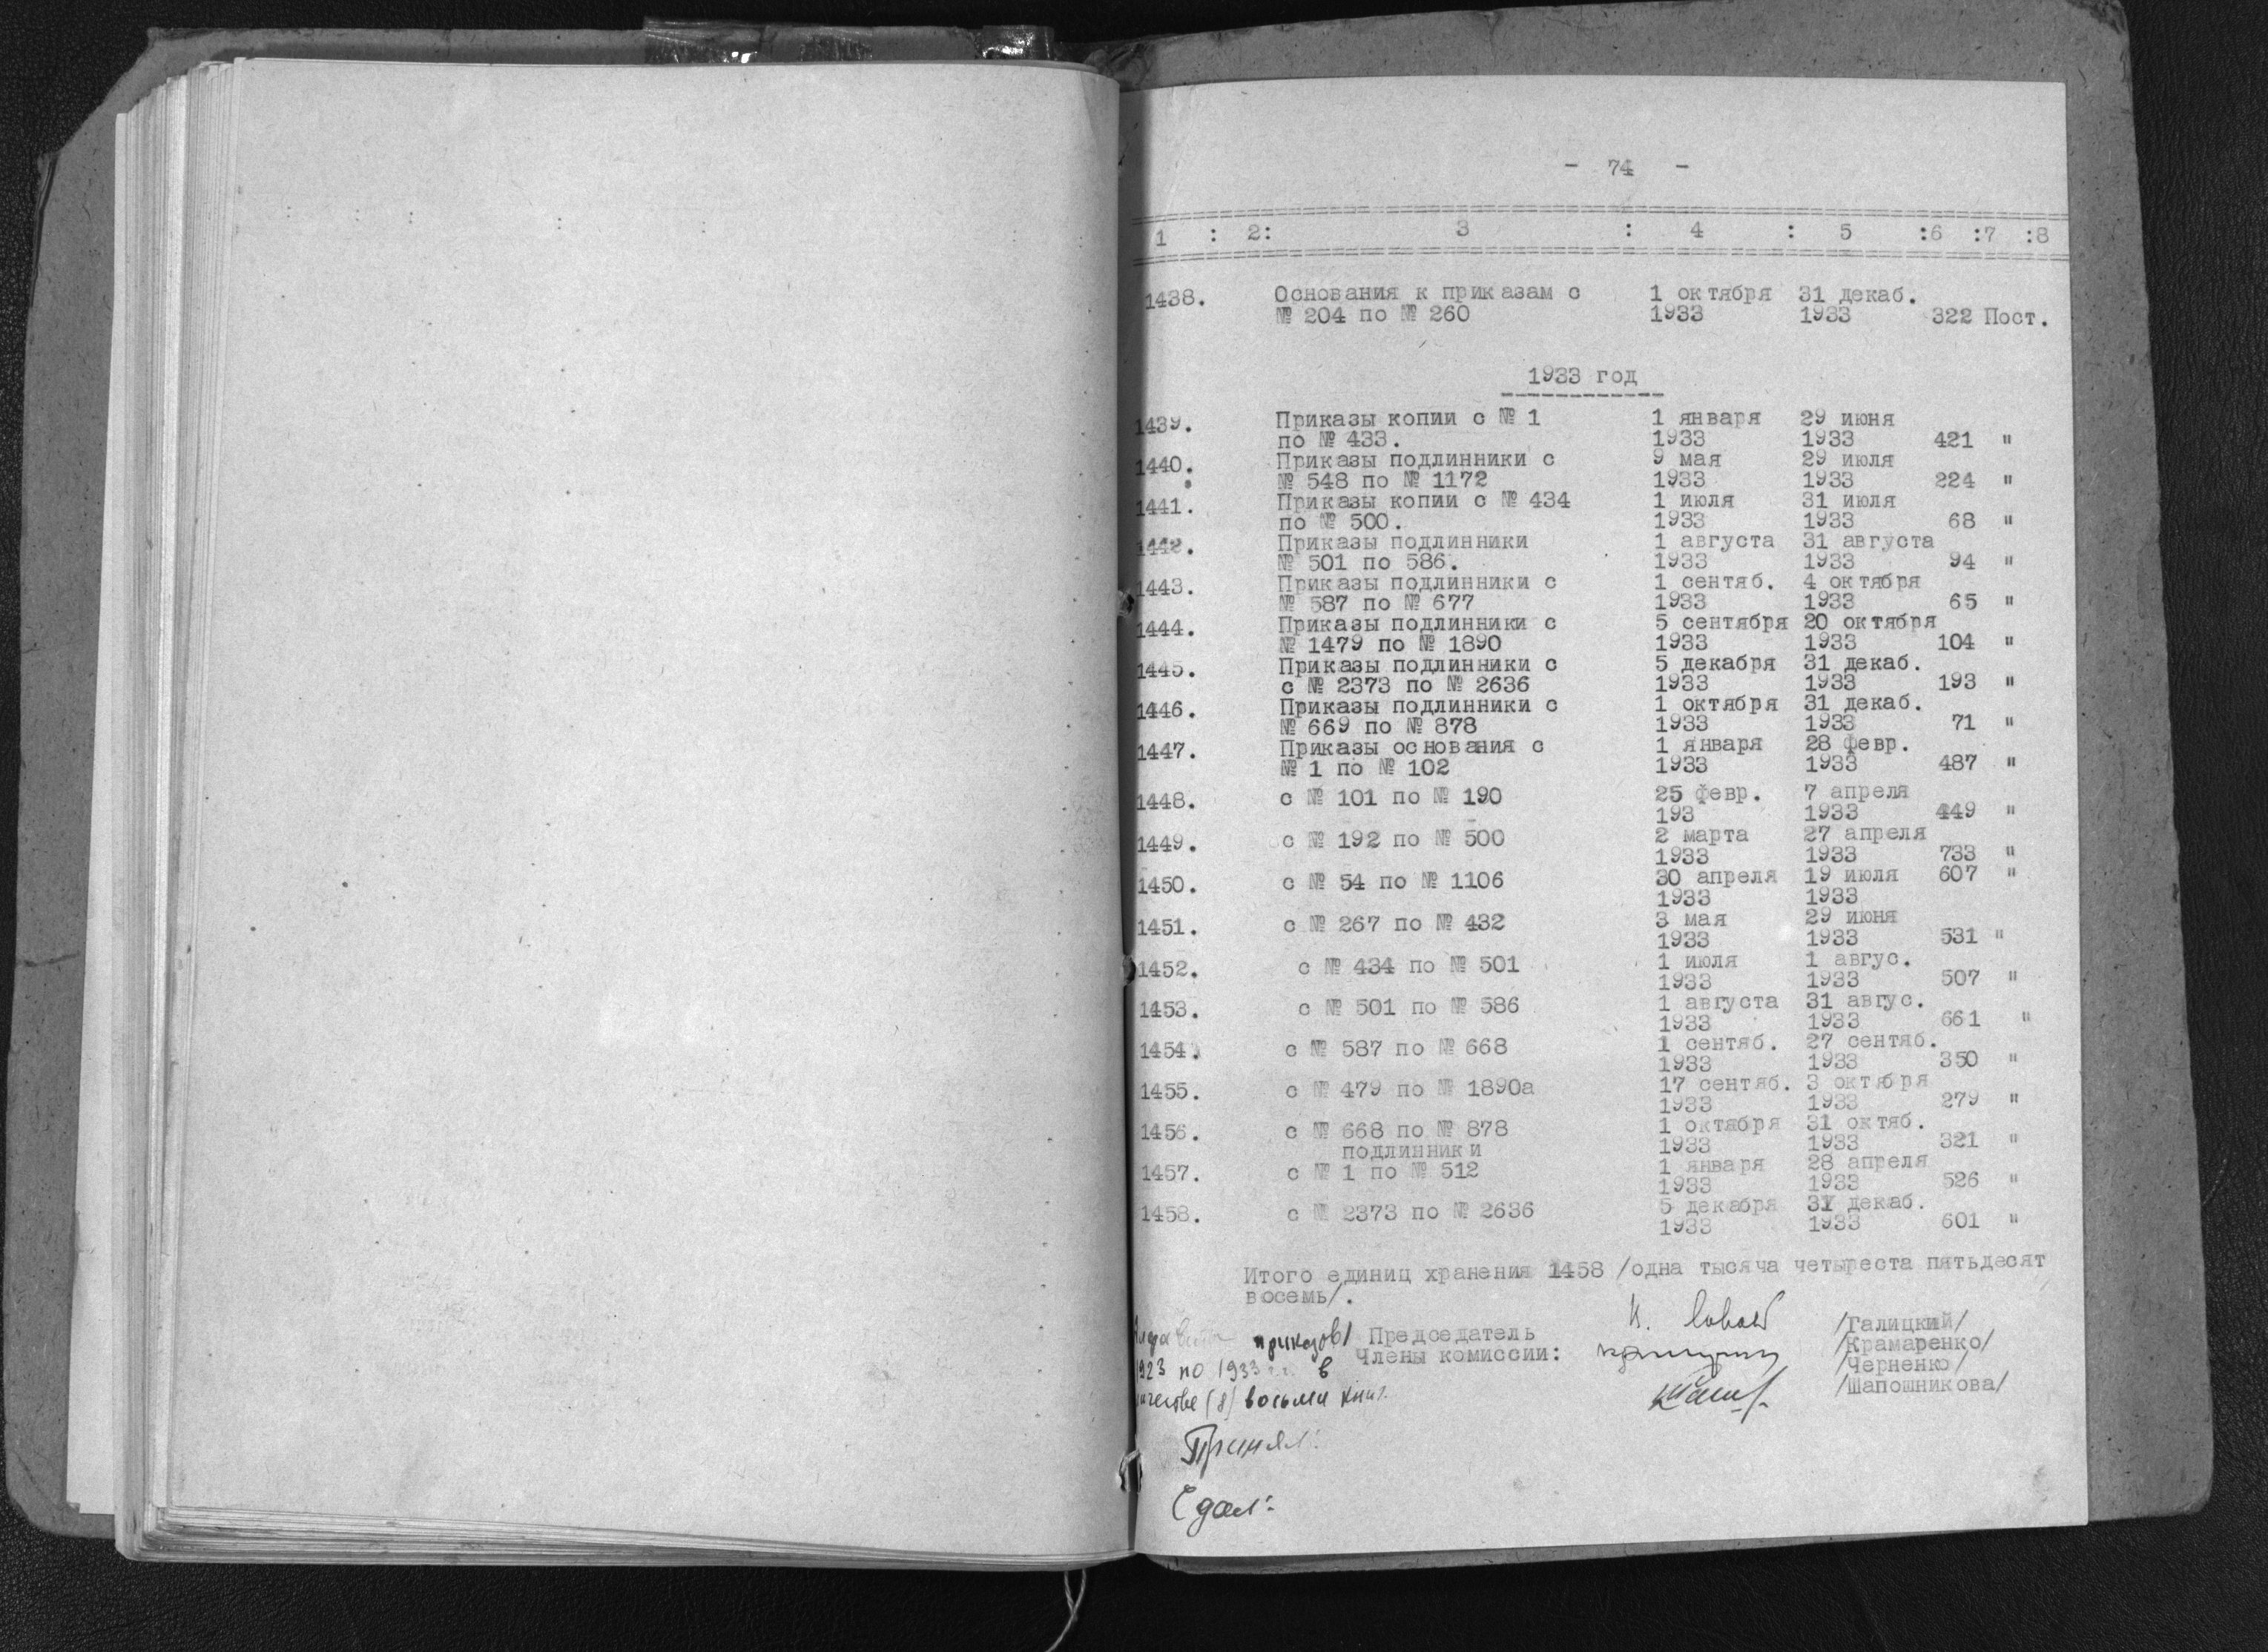 - 74 -
1 : 2: 3 : 4 : 5 :6 :7 :8
1438. Основания к приказам с 1 октября 31 декаб.
№ 204 по № 260 1933 1933 322 Пост.
1933 год
1439. Приказы копии с № 1 1 января 29 июня
по № 433. 1933 1933 421 "
1440. Приказы подлинники с 9 мая 29 июля
№ 548 по № 1172 1933 1933 224 "
1441. Приказы копии с № 434 1 июля 31 июля
по № 500. 1933 1933 68 "
1442. Приказы подлинники 1 августа 31 августа
№ 501 по 586. 1933 1933 94 "
1443. Приказы подлинники с 1 сентяб. 4 октября
№ 587 по № 677 1933 1933 65 "
1444. Приказы подлинники с 5 сентября 20 октября
№ 1479 по № 1890 1933 1933 104 "
1445. Приказы подлинники с 5 декабря 31 декаб.
с № 2373 по № 2636 1933 1933 193 "
1446. Приказы подлинники с 1 октября 31 декаб.
№ 669 по № 878 1933 1933 71 "
1447. Приказы основания с 1 января 28 февр.
№ 1 по № 102 1933 1933 487 "
1448. с № 101 по № 190 25 февр. 7 апреля
193 1933 449 "
1449. с № 192 по № 500 2 марта 27 апреля
1933 1933 733 "
1450. с № 54 по № 1106 30 апреля 19 июля 607 "
1933 1933
1451. с № 267 по № 432 3 мая 29 июня
1933 1933 531 "
1452. с № 434 по № 501 1 июля 1 авгус.
1933 1933 507 "
1453. с № 501 по № 586 1 августа 31 авгус.
1933 1933 661 "
1454. с № 587 по № 668 1 сентяб. 27 сентяб.
1933 1933 350 "
1455. с № 479 по № 1890а 17 сентяб. 3 октября
1933 1933 279 "
1456. с № 668 по № 878 1 октября 31 октяб.
подлинники 1933 1933 321 "
1457. с № 1 по № 512 1 января 28 апреля
1933 1933 526 "
1458. с № 2373 по № 2636 5 декабря 31 декаб.
1933 1933 601 "
Итого единиц хранения 1458 /одна тысяча четыреста пятьдесят
восемь/.
приказов/ Председатель /Галицкий/
Члены комиссии: /Крамаренко/
/Черненко/
/Шапошникова/
1923 по 1933 г.г. в
(8) восьми книг.
Принял:
Сдал: